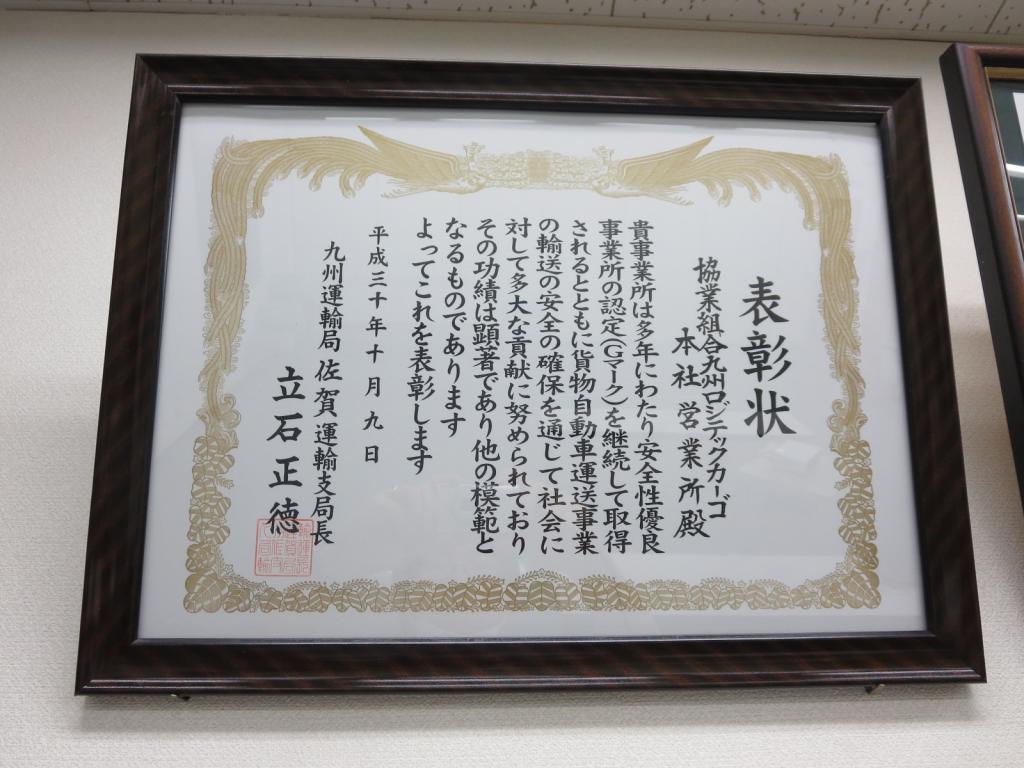 表彰状
協業組合九州ロジテックカーゴ
本社営業所殿
貴事業所は多年にわたり安全性優良
事業所の認定(Gマーク)を継続して取得
されるとともに貨物自動車運送事業
の輸送の安全の確保を通じて社会に
対して多大な貢献に努められており
その功績は顕著であり他の模範と
なるものであります
よってこれを表彰します
平成三十年十月九日
九州運輸局 佐賀運輸支局長
立石正徳